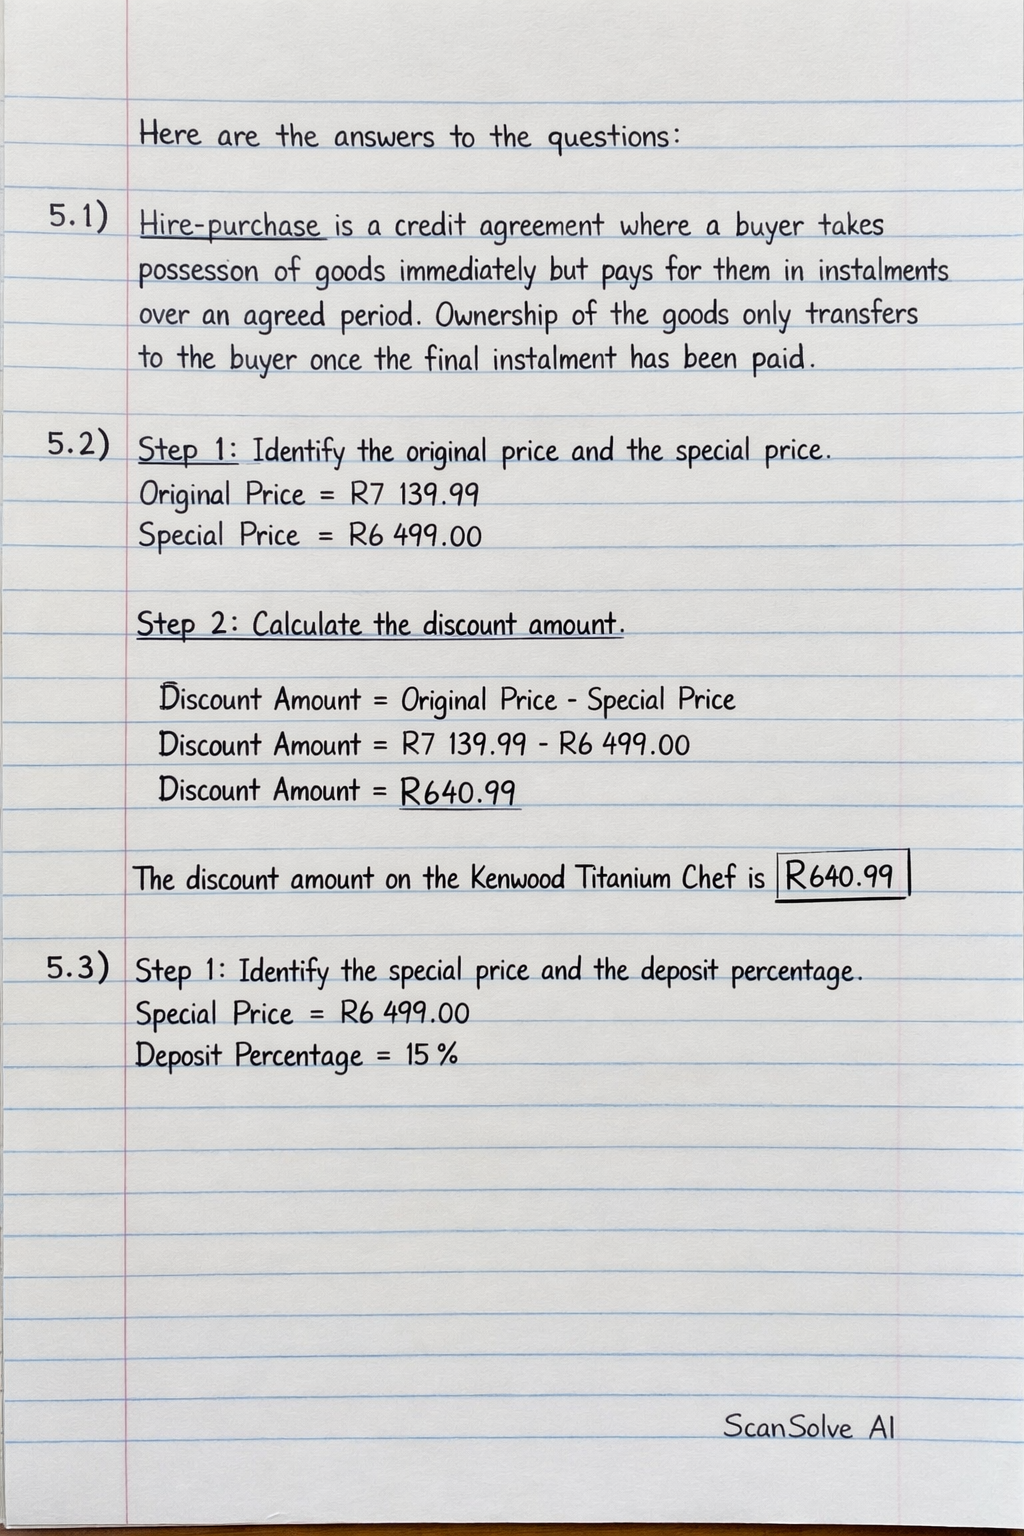 Here are the answers to the questions:
5.1) Hire-purchase is a credit agreement where a buyer takes
possesson of goods immediately but pays for them in instalments
over an agreed period. Ownership of the goods only transfers
to the buyer once the final instalment has been paid.
5.2) Step 1: Identify the original price and the special price.
Original Price = R7 139.99
Special Price = R6 499.00
Step 2: Calculate the discount amount.
Discount Amount = Original Price - Special Price
Discount Amount = R7 139.99 - R6 499.00
Discount Amount = R640.99
The discount amount on the Kenwood Titanium Chef is R640.99
5.3) Step 1: Identify the special price and the deposit percentage.
Special Price = R6 499.00
Deposit Percentage = 15 %
ScanSolve AI